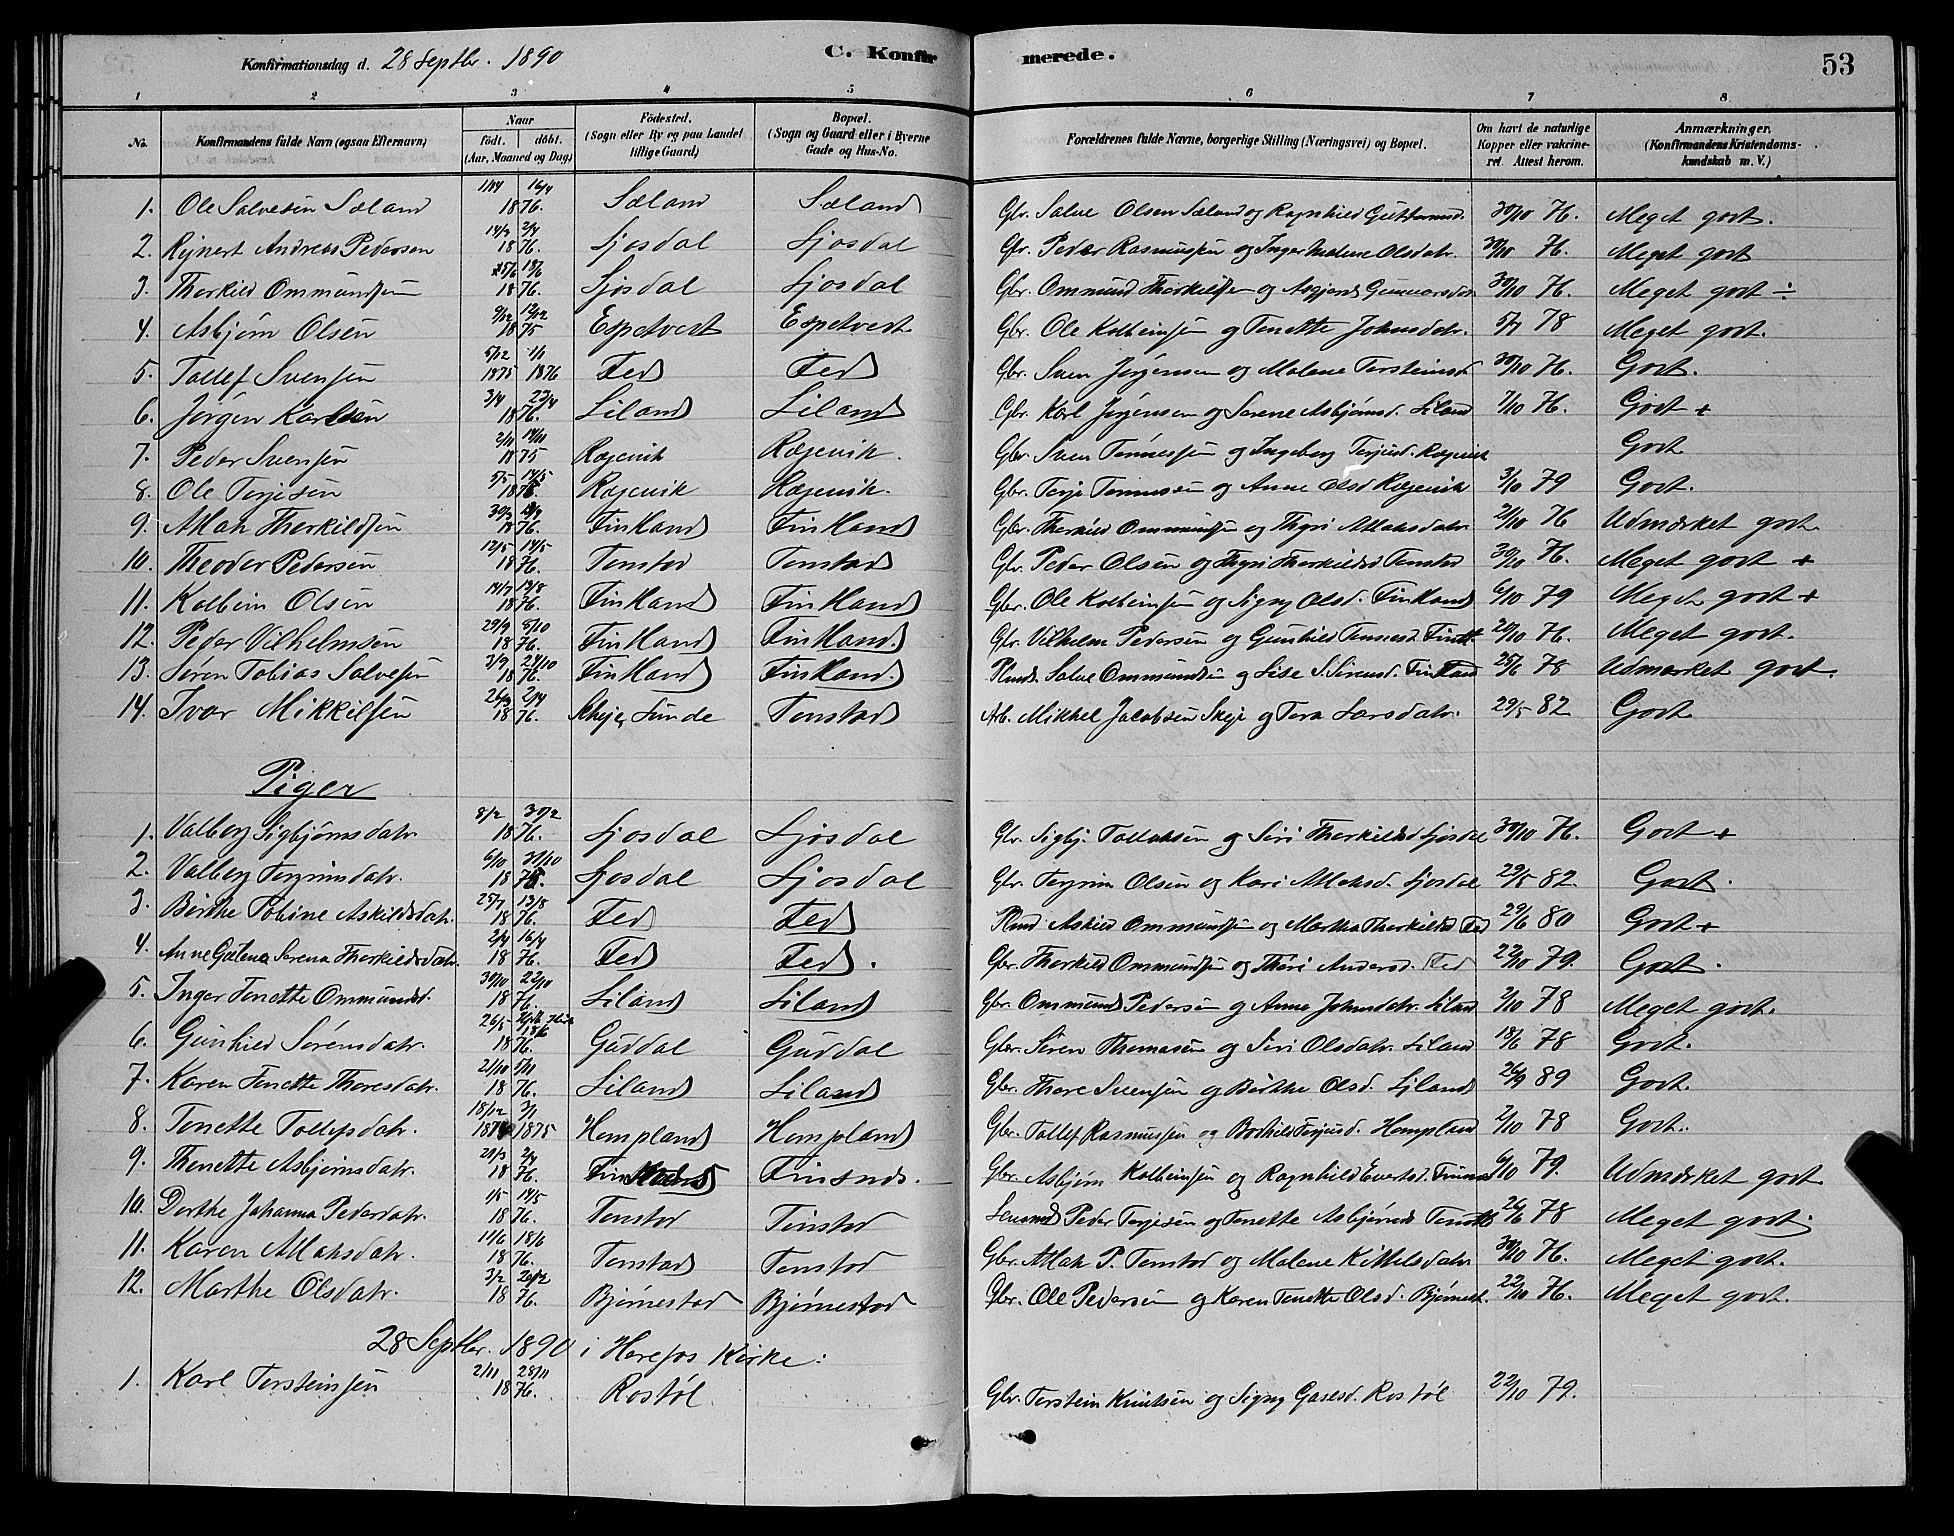 Konfirmationsdag d. 28 Septbr. 1890 C. Konfirmerede. 53
1 2 3 4 5 6 7 8
No. Konfirmandens fulde Navn (ogsaa Efternavn) Naar födt. döbt. (Aar, Maaned og Dag) Födested. (Sogn eller By og paa Landet tillige Gaard) Bopæl. (Sogn og Gaard eller i Byerne Gade og Hus-No. Forældrenes fulde Navne, borgerlige Stilling (Næringsvei) og Bopæl. Om havt de naturlige Kopper eller vakcineret. Attest herom. Anmærkninger. (Konfirmandens Kristendomskundskab m. V.)
1. Ole Salvesen Sæland 1/4 16/4 1876. Sæland Sæland Gbr. Salve Olsen Sæland og Ragnhild 30/10 76. Meget godt.
2. Rejnert Andreas Pedersen 14/3 2/4 1876. Sjosdal Sjosdal Gbr. Peder Rasmussen og Inger Malene Olsdatr. 30/10 76. Meget godt
3. Thorkild Ommundsen 18/6 1876. Sjosdal Sjosdal Gbr. Ommund Thorkildsen og Asgjerd Gunnarsdatr 30/10 76. Meget godt ÷
4. Asbjørn Olsen 9/12 12/12 1875 Espetvest Espetvest Gbr. Ole Kolbeinsen og Tonette Johnsdatr. 5/7 78 Meget godt.
5. Tollef Svensen 5/12 1875 1/1 1876 Fed Fed Gbr. Sven Jørgensen og Malene Torsteinsd 30/10 76. Godt.
6. Jørgen Karlsen 3/4 23/4 1876. Liland Liland Gbr. Karl Jørgensen og Serene Asbjørnsd. Liland 7/10 76. Godt +
7. Peder Svensen 2/11 14/11 1875 Rægevik Rægevik. Gbr. Sven Tønnessen og Ingeborg Terjesd. Rægevik Godt
8. Ole Terjesen 5/5 14/5 1876. Rægevik Rægevik. Gbr. Terje Tønnessen og Anne Olsd Rægevik 3/10 79 Godt.
9. Atlak Thorkildsen 30/3 1876. Finkland Finkland Gbr. Thorkild Ommundsen og Thyri Atlaksdatr. 21/10 76 Udmærket godt.
10. Theodor Pedersen 12/5 14/5 1876. Tonstad Tonstad Gbr. Peder Olsen og Thyri Thorkildsd Tonstad 30/10 76. Meget godt +
11. Kolbein Olsen 14/7 13/8 1876. Finkland Finkland Gbr. Ole Kolbeinsen og Signy Olsd. Finkland 6/10 79 Meget godt +
12. Peder Vilhelmsen 29/9 8/10 1876. Finkland Finkland. Gbr. Vilhelm Pedersen og Gunhild Tønnesd 20/10 76. Meget godt.
13. Søren Tobias Salvesen 3/9 22/10 1876. Finkland Finkland. Salve Ommundsen og Lise S. Sørensd. Finkland 25/6 78 Udmærket godt.
14. Ivar Mikkelsen 26/3 2/4 1876. Skeje, Lunde Tonstad Arb. Mikkel Jacobsen Skeje og Tora Larsdatr. 29/5 82 Godt
Piger
1. Valborg Sigbjørnsdatr. 8/2 1876. Sjosdal Sjosdal Gbr. Sigbj. Tollaksen og Siri Thorkildsd Sjosdal 30/10 76. Godt +
2. Valborg Torgrimsdatr. 6/10 31/10 1875. Sjosdal Sjosdal Gbr. Torgrim Olsen og Kari Atlaksd. Sjosdal 29/5 82. Godt.
3. Børthe Tobine Askildsdatr. 25/7 13/8 1876. Fed Fed Askild Ommundsen og Martha Thorkildsd Fed 29/6 80 Godt +
4. Anne Gælena Serena Thorkildsdatr. 2/4 16/4 1876. Fed Fed. Gbr. Thorkild Ommundsen og Thori Andersd. Fed 22/10 79. Godt.
5. Inger Tonette Ommundsd. 22/10 1876. Liland Liland Gbr. Ommund Pedersen og Anne Johnsdatr. Liland 2/10 78 Meget godt.
6. Gunhild Sørensdatr. 26/5 18/6 1876. Guddal Guddal Gbr. Søren Thomasen og Siri Olsdatr. Liland 18/6 78 Godt.
7. Karen Tonette Thoresdatr. 21/10 5/11 1876. Liland Liland Gbr. Thore Svensen og Børthe Olsd. Liland 26/9 89 Godt.
8. Tonette Tollefsdatr. 18/12 1874 3/1 1875 Hompland Hompland Gbr. Tollef Rasmussen og Bodhild Terjesd. Hompland 2/10 78 Godt.
9. Thonette Asbjørnsdatr. 2/4 1876. Finsnes. Gbr. Asbjørn Kolbeinsen og Ragnhild Evertsd. 6/10 79. Udmærket godt
10. Dorthe Johanna Pedersdatr. 1/5 14/5 1876. Tonstad Tonstad Lensmd Peder Terjesen og Tonette Asbjørnsd 26/6 78 Meget godt.
11. Karen Atlaksdatr. 11/6 18/6 1876. Tonstad Tonstad Gbr. Atlak P. Tonstad og Malene Kittelsdatr. 30/10 76. Meget godt.
12. Marthe Olsdatr. 3/2 20/2 1876. Bjørnestad Bjørnestad Gbr. Ole Pedersen og Karen Tonette Olsd. Bjørnest. 22/10 76. Meget godt.
28 Septbr. 1890 i Kirke:
1. Karl Torsteinsen 2/11 28/11 1876. Rostøl. Gbr. Torstein Knutsen og Signy Gasesd. Rostøl 22/10 79.